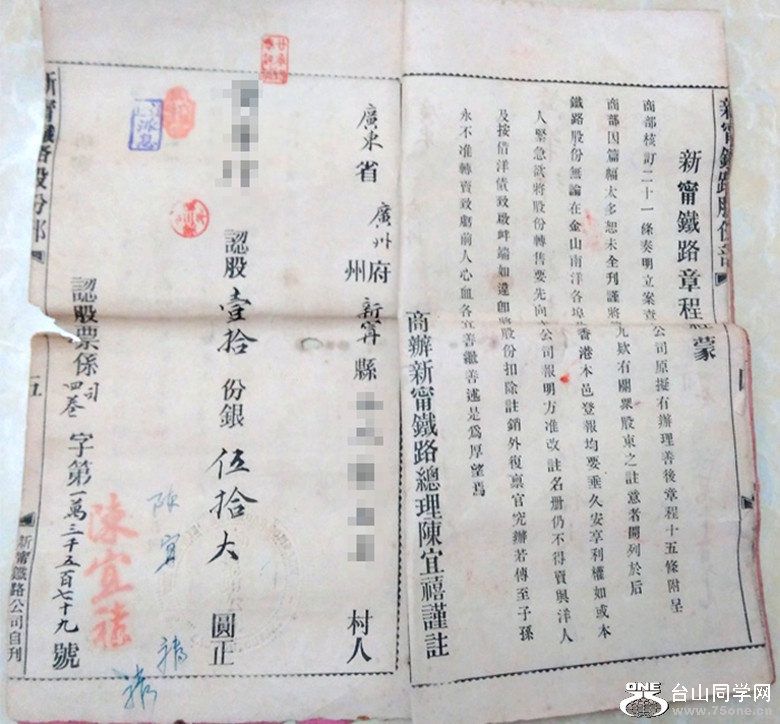 新甯鐵路股份部
新甯鐵路章程經蒙
商部核訂二十一條奏明立案查公司原擬有辦理善後章程十五條附呈
商部因篇幅太多恕未全刊謹將九欵有關眾股東之註意者開列於后
鐵路股份無論在金山南洋各埠香港本邑登報均要垂久安享利權如或本
人緊急欲將股份轉售要先向公司報明方准改註名册仍不得賣與洋人
及按借洋債致啟衅端如違即將股份扣除註銷外復禀官究辦若傳至子孫
永不准轉賣致虧前人心血各宜善繼善述是爲厚望焉
商辦新甯鐵路總理陳宜禧謹註
廣東省廣州府州新寧縣
村人
認股壹拾份銀伍拾大圓正
派息
陳宜禧
認股票係司四卷字第一萬三千五百七十九號
陳宜禧
新甯鐵路股份部
五
新甯鐵路公司自刊
ONE
台山同学网
www.75one.cn